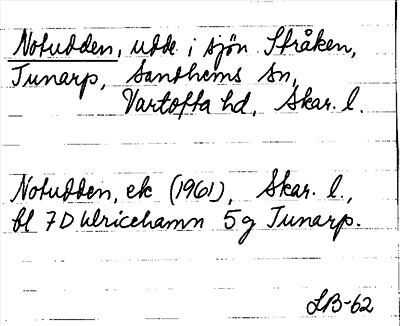 Notudden, udde i sjön Stråken,
Tunarp, Sandhems sn,
Vartofta hd, Skar. l.
Notudden, ek (1961), Skar. l.,
bl 7D Ulricehamn 5g Tunarp.
LB-62